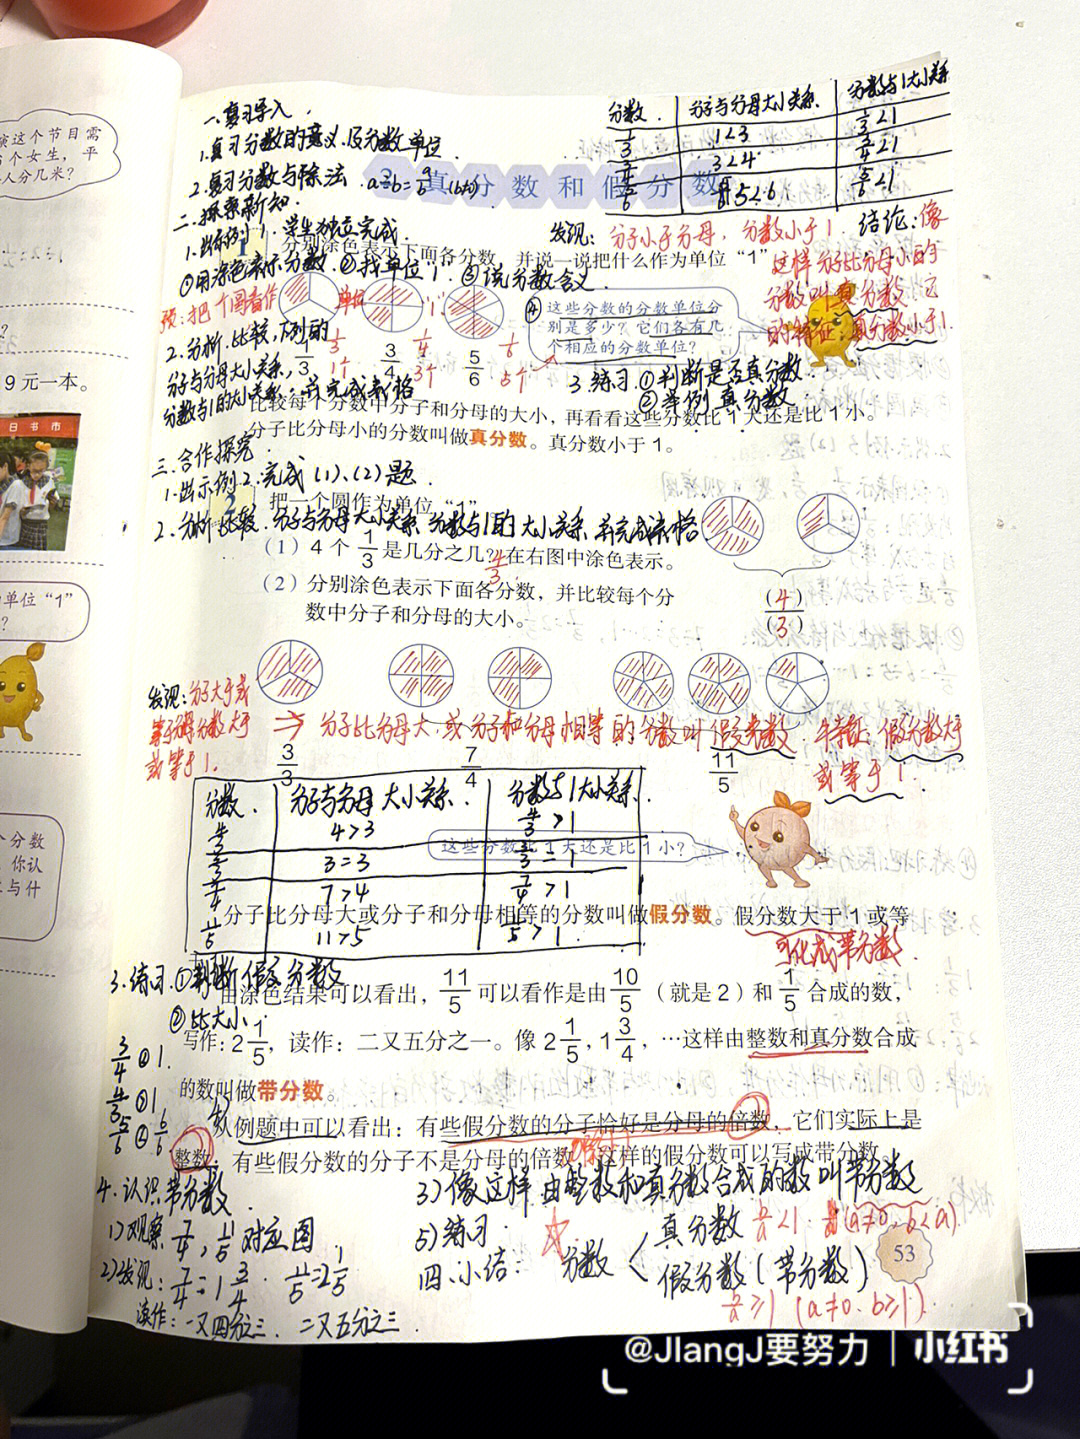 一、复习导入.
1.复习分数的意义及分数单位.
2.复习分数与除法. a÷b=a/b (b≠0)
二、探索新知.
1.出示例1. 学生独立完成.
①用涂色表示分数 ②找单位"1" ③说分数含义.
分数. 分子与分母大小关系. 分数与1大小关系
1/3 1<3 1/3<1
3/4 3<4 3/4<1
5/6 5<6 5/6<1
真分数和假分数
发现: 分子小于分母, 分数小于1. 结论: 像
这样分子比分母小的
分数叫真分数, 它
的特征: 真分数小于1.
1 分别涂色表示下面各分数,并说一说把什么作为单位“1”
④ 这些分数的分数单位分
别是多少?它们各有几
个相应的分数单位?
1/3 3/4 5/6
1/3 1/4 1/6
1个 3个 5个
2.分析.比较,下列的
分子与分母大小关系,
分数与1的大小关系. 并完成表格
3.练习.①判断是否真分数.
②举例真分数
比较每个分数中分子和分母的大小,再看看这些分数比1大还是比1小。
分子比分母小的分数叫做真分数。真分数小于1。
三.合作探究.
1.出示例2.完成(1)、(2)题.
2 把一个圆作为单位“1”
2.分析比较.分子与分母大小关系.分数与1的大小关系.并完成表格.
(1)4个1/3是几分之几?在右图中涂色表示。
4/3
(2)分别涂色表示下面各分数,并比较每个分
数中分子和分母的大小。
(4)
(3)
发现:分子大于或
等于分母分数大于
或等于1.
⇒ 分子比分母大.或分子和分母相等的分数叫假分数. 特征: 假分数大于
或等于1.
3/3 7/4 11/5
分数. 分子与分母大小关系. 分数与1大小关系.
4/3 4>3 4/3>1
3/3 3=3 3/3=1
7/4 7>4 7/4>1
11/5 11>5 11/5>1
这些分数比1大还是比1小?
分子比分母大或分子和分母相等的分数叫做假分数。假分数大于1或等
可化成带分数.
3.练习.①判断假分数
由涂色结果可以看出,11/5可以看作是由10/5(就是2)和1/5合成的数,
②比大小.
写作:2 1/5,读作:二又五分之一。像2 1/5,1 3/4,…这样由整数和真分数合成
的数叫做带分数。
3/4 1.
4/3 1
5/6 6/6
从例题中可以看出:有些假分数的分子恰好是分母的倍数,它们实际上是
整数,有些假分数的分子不是分母的倍数,这样的假分数可以写成带分数。
4.认识带分数
1)观察7/4, 11/5对应图
2)发现: 7/4=1 3/4. 11/5=2 1/5
读作: 一又四分之三. 二又五分之三.
3)像这样由整数和真分数合成的数叫带分数
5)练习.
四.小结: 分数 真分数 b/a<1 (a≠0,b<a).
假分数(带分数)
b/a≥1 (a≠0. b≥1).
53
演这个节目需
个女生,平
人分几米?
9元一本。
日书市
单位“1”
?
个分数
你认
与什
@JIangJ要努力 | 小红书